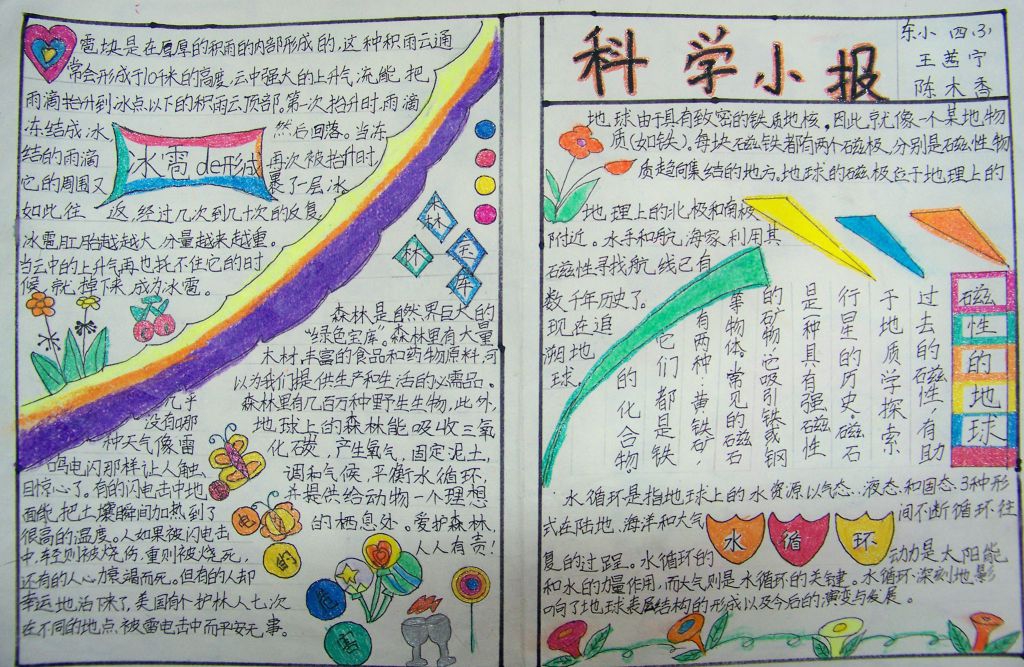 雹块是在厚厚的积雨的内部形成的,这种积雨云通
常会形成于10千米的高度,云中强大的上升气流能把
雨滴抬升到冰点以下的积雨云顶部。第一次抬升时,雨滴
冻结成冰,然后回落。当冻
结的雨滴再次被抬升时,
它的周围又裹了一层冰
如此往返,经过几次到几十次的反复
冰雹肛胎越越大,分量越来越重。
当云中的上升气再也托不住它的时
候,就掉下来,成为冰雹。
冰雹de形成
森林宝库
森林是自然界巨大的
“绿色宝库”。森林里有大量
木材,丰富的食品和药物原料,可
以为我们提供生产和生活的必需品。
森林里有几百万种野生生物,此外,
地球上的森林能吸收三氧
化碳,产生氧气,固定泥土,
调和气候,平衡水循环,
并提供给动物一个理想
的栖息处。爱护森林,
人人有责!
几乎
没有哪
种天气像雷
鸣电闪那样让人触
目惊心了。有的闪电击中地
面能把土壤瞬间加热到了
很高的温度。人如果被闪电击
中,轻则被烧伤,重则被烧死,
还有的人心力衰竭而死。但有的人却
幸运地活下来了,美国有个护林人七次
在不同的地点,被雷电击中而平安无事。
电
雷
科学小报
东小 四(3)
王茜宁
陈木香
地球由于具有致密的铁质地核,因此就像一个某地物
质(如铁)。每块磁铁都有两个磁极,分别是磁性物
质趋向集结的地方,地球的磁极位于地理上的
地理上的北极和南极
附近。水手和航海家利用其
磁性寻找航线已有
数千年历史了。
现在追
溯地
球
过去的磁性,有助
于地质学探索
行星的历史。磁石
是一种具有强磁性
的矿物,它吸引铁或钢
等物体。常见的磁石
有两种:黄铁矿,
它们都是铁
的化合物
磁性的地球
水循环是指地球上的水资源以气态、液态和固态,3种形
式在陆地、海洋和大气间不断循环往
复的过踁。水循环的动力是太阳能
和水的力量作用,而大气则是水循环的关键。水循环深刻地影
响了地球表层结构的形成以及今后的演变与发展。
水循环